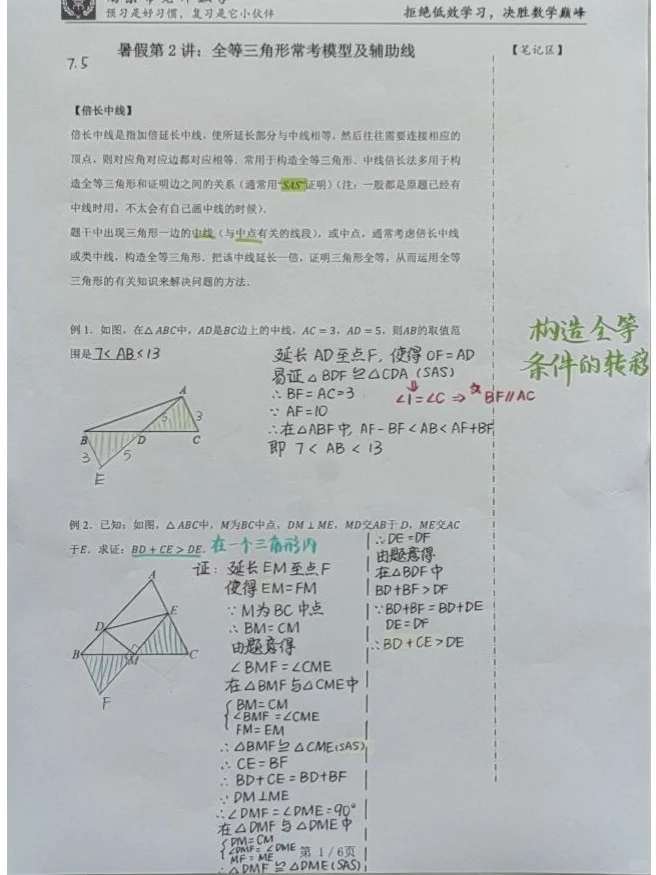 预习是好习惯，复习是它小伙伴
拒绝低效学习，决胜数学巅峰
暑假第2讲：全等三角形常考模型及辅助线
【笔记区】
7.5
【倍长中线】
倍长中线是指加倍延长中线，使所延长部分与中线相等，然后往往需要连接相应的
顶点，则对应角对应边都对应相等．常用于构造全等三角形．中线倍长法多用于构
造全等三角形和证明边之间的关系（通常用“SAS”证明）（注：一般都是原题已经有
中线时用，不太会有自己画中线的时候）．
题干中出现三角形一边的中线（与中点有关的线段），或中点，通常考虑倍长中线
或类中线，构造全等三角形．把该中线延长一倍，证明三角形全等，从而运用全等
三角形的有关知识来解决问题的方法．
例1．如图，在△ABC中，AD是BC边上的中线，AC＝3，AD＝5，则AB的取值范
围是 7＜AB＜13
延长AD至点F，使得DF＝AD
易证△BDF≌△CDA（SAS）
∴BF＝AC＝3
∠1＝∠C ⇒ BF∥AC
∵AF＝10
∴在△ABF中，AF－BF＜AB＜AF＋BF
即 7＜AB＜13
构造全等
条件的转移
A
5
3
B
D
C
3
5
E
例2．已知：如图，△ABC中，M为BC中点，DM⊥ME，MD交AB于D，ME交AC
于E．求证：BD＋CE＞DE．
在一个三角形内
A
E
D
B
M
C
F
证：延长EM至点F
使得EM＝FM
∵M为BC中点
∴BM＝CM
由题意得
∠BMF＝∠CME
在△BMF与△CME中
BM＝CM
∠BMF＝∠CME
FM＝EM
∴△BMF≌△CME(SAS)
∴CE＝BF
∴BD＋CE＝BD＋BF
∵DM⊥ME
∴∠DMF＝∠DME＝90°
在△DMF与△DME中
DM＝CM
∠DMF＝∠DME
MF＝ME
∴△DMF≌△DME(SAS)
∴DE＝DF
由题意得
在△BDF中
BD＋BF＞DF
∵BD＋BF＝BD＋DE
DE＝DF
∴BD＋CE＞DE
第 1 / 6页